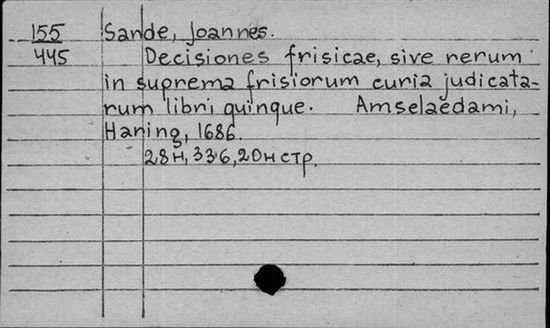 155 Sande, Joannes.
445 Decisiones frisicae, sive rerum
in suprema frisiorum curia judicata-
rum libri quinque. Amselaedami,
Haring, 1686.
28н, 336, 20н стр.